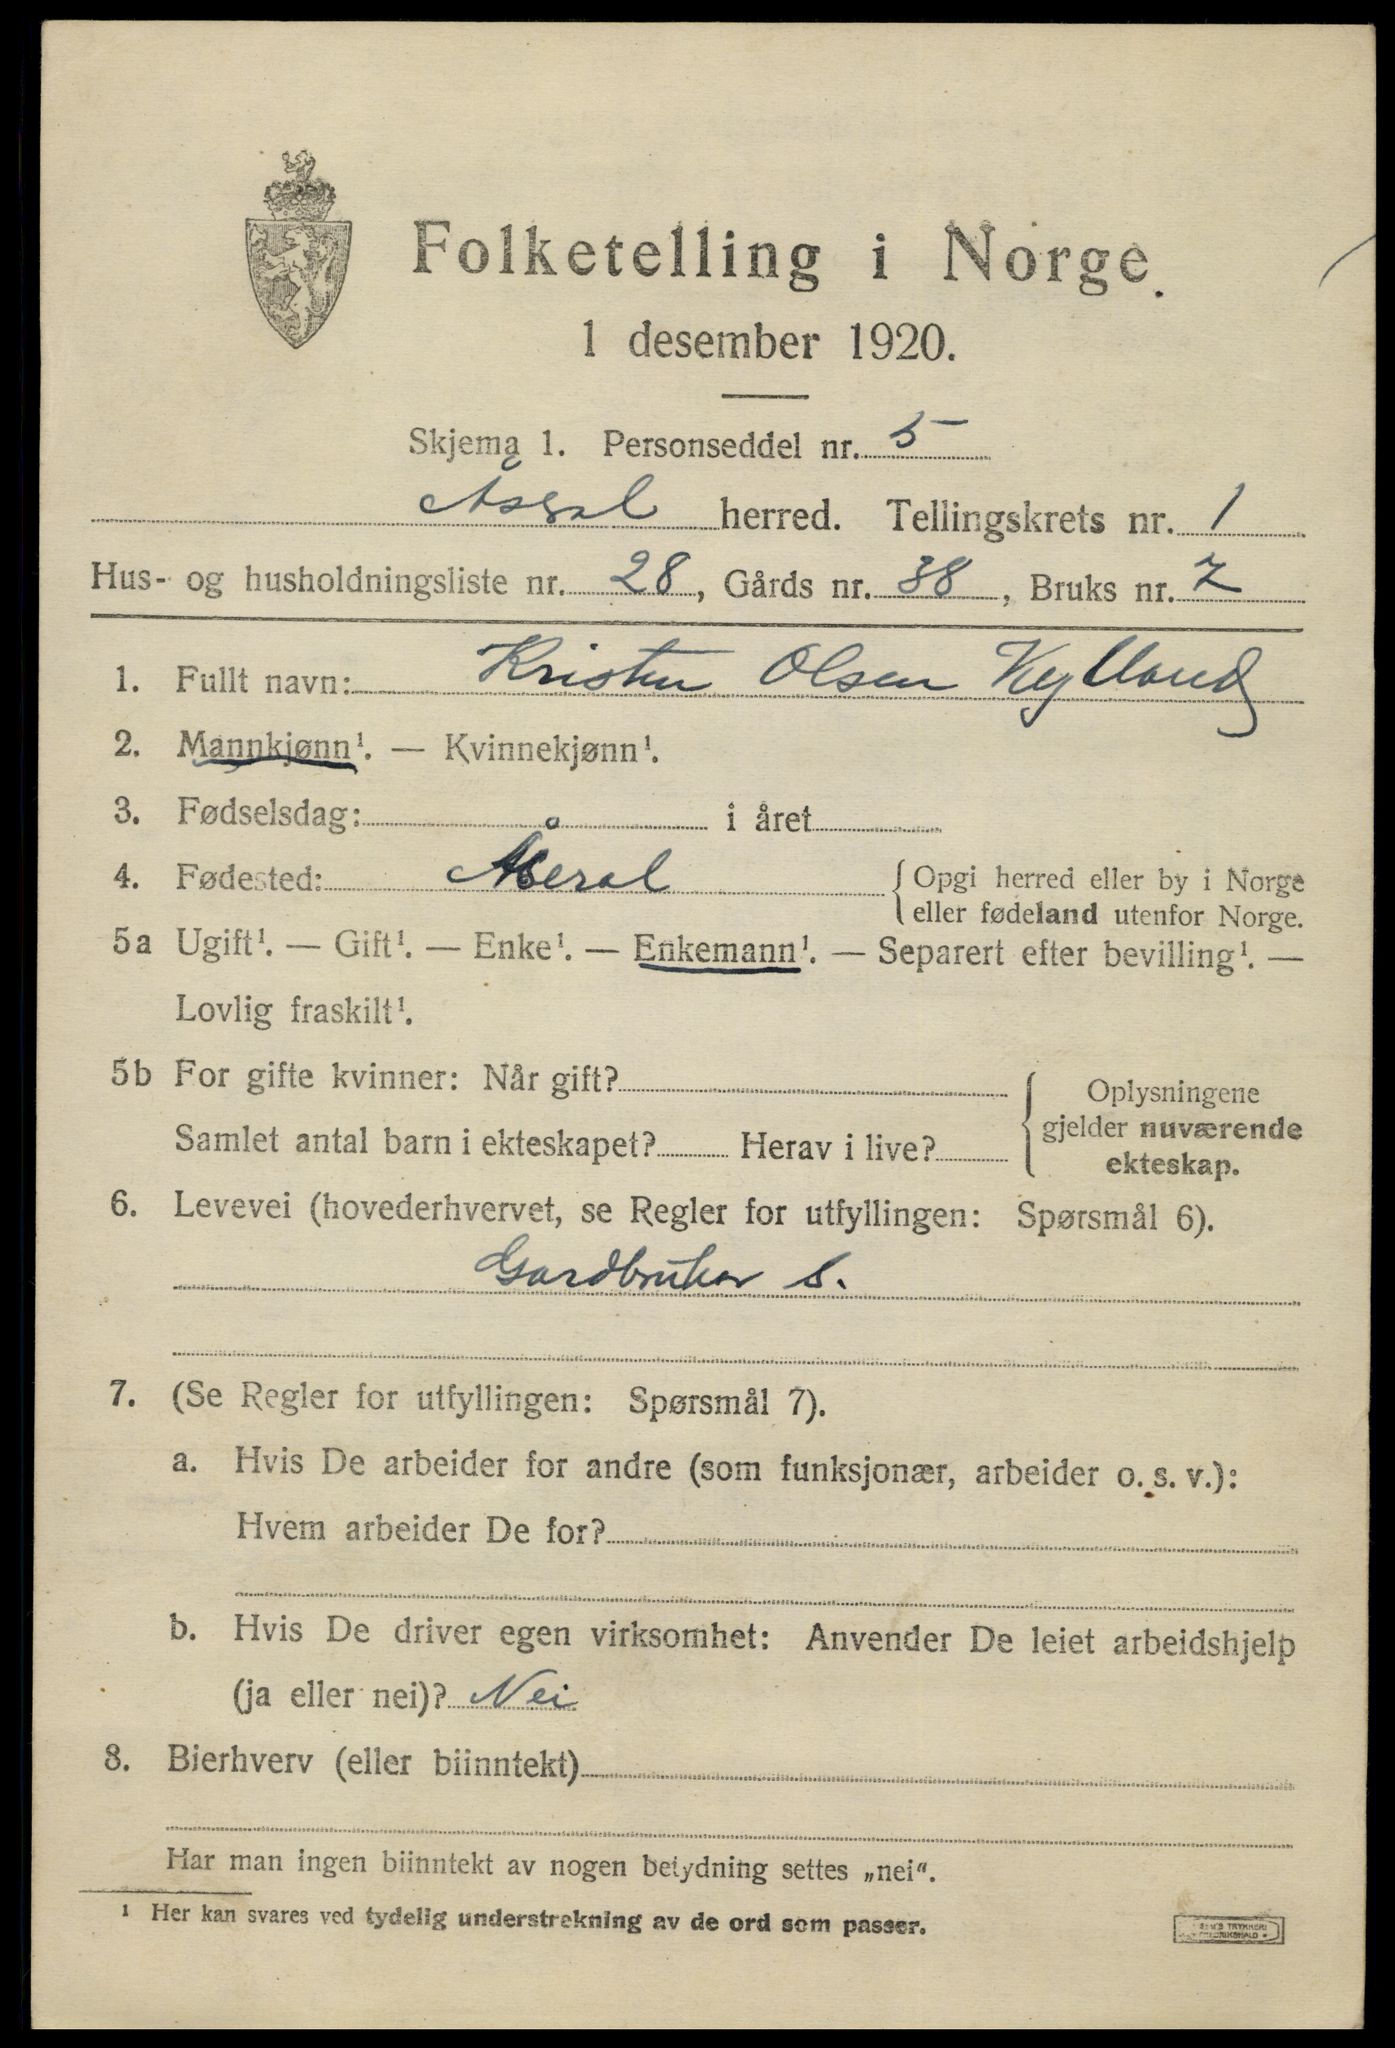 Folketelling i Norge.
1 desember 1920.
Skjema 1. Personseddel nr. 5
Åseral herred. Tellingskrets nr. 1
Hus- og husholdningsliste nr. 28, Gårds nr. 38, Bruks nr. 7
1. Fullt navn: Kristen Olsen Kylland
2. Mannkjønn¹. — Kvinnekjønn¹.
3. Fødselsdag: i året
4. Fødested: Åseral { Opgi herred eller by i Norge
eller fødeland utenfor Norge.
5a Ugift¹. — Gift¹. — Enke¹. — Enkemann¹. — Separert efter bevilling¹. —
Lovlig fraskilt¹.
5b For gifte kvinner: Når gift?
Samlet antal barn i ekteskapet? Herav i live?
Oplysningene
gjelder nuværende
ekteskap.
6. Levevei (hovederhvervet, se Regler for utfyllingen: Spørsmål 6).
Gardbruker S.
7. (Se Regler for utfyllingen: Spørsmål 7).
a. Hvis De arbeider for andre (som funksjonær, arbeider o. s. v.):
Hvem arbeider De for?
b. Hvis De driver egen virksomhet: Anvender De leiet arbeidshjelp
(ja eller nei)? Nei
8. Bierhverv (eller biinntekt)
Har man ingen biinntekt av nogen betydning settes „nei“.
¹ Her kan svares ved tydelig understrekning av de ord som passer.
TRYKKERI
FREDRIKSHALD